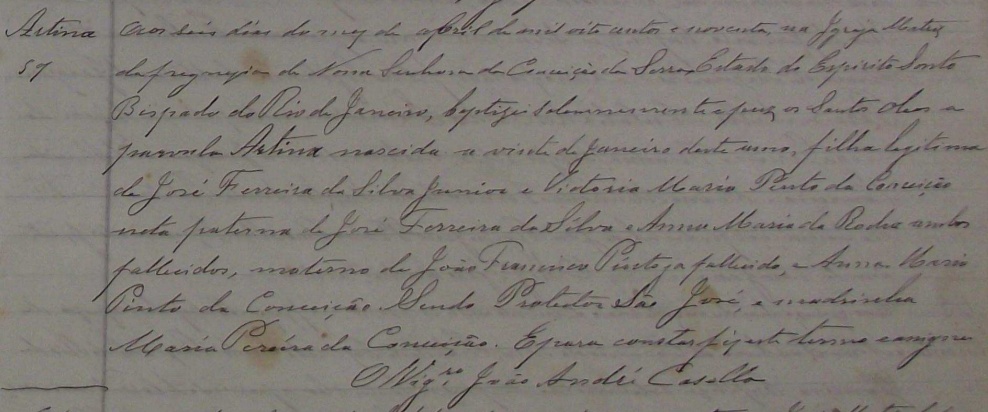 Artina Aos seis dias do mez de Abril de mil oito centos e noventa, na Igreja Matriz
57 da freguezia de Nossa Senhora da Conceição da Serra, Estado do Espirito Santo
Bispado do Rio de Janeiro, baptizei solennemente e puz os Santos Oleos a
parvula Artina nascida a vinte de Janeiro deste anno, filha legitima
de José Ferreira da Silva Junior e Victoria Maria Pinto da Conceição
neta paterna de José Ferreira da Silva e Anna Maria da Rocha ambos
fallecidos, materno de João Francisco Pinto ja fallecido, e Anna Maria
Pinto da Conceição. Sendo Protector São José, e madrinha
Maria Pereira da Conceição. E para constar fiz este termo e assignei
O Vigrº João André Casella